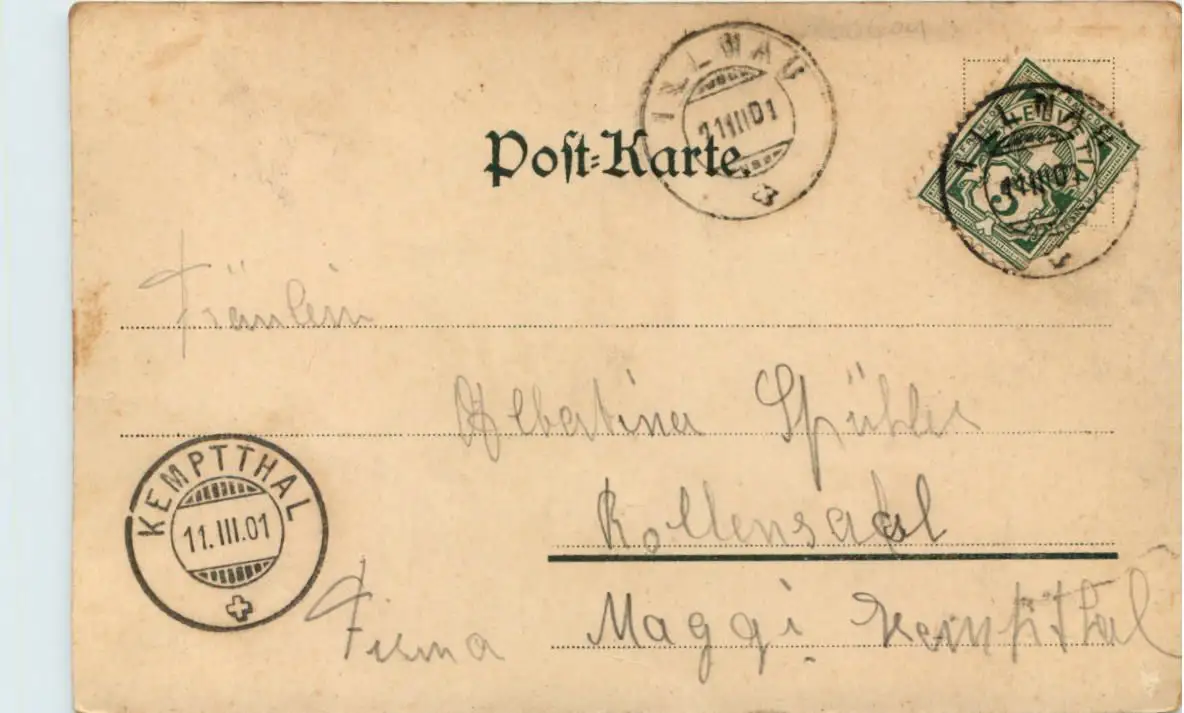 ILLNAU
11 III 01
Post-Karte.
HELVETIA
5
ILLNAU
11 III 01
Fräulein
Albertina Spühler
Rollensaal
KEMPTTHAL
11. III. 01
Firma Maggi Kemptthal